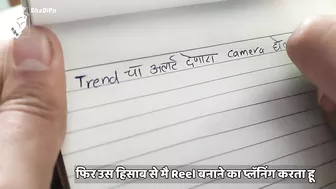 BkaDiPa
Trend चा अलर्ट देणारा camera
फिर उस हिसाब से मै Reel बनाने का प्लॅनिंग करता हू